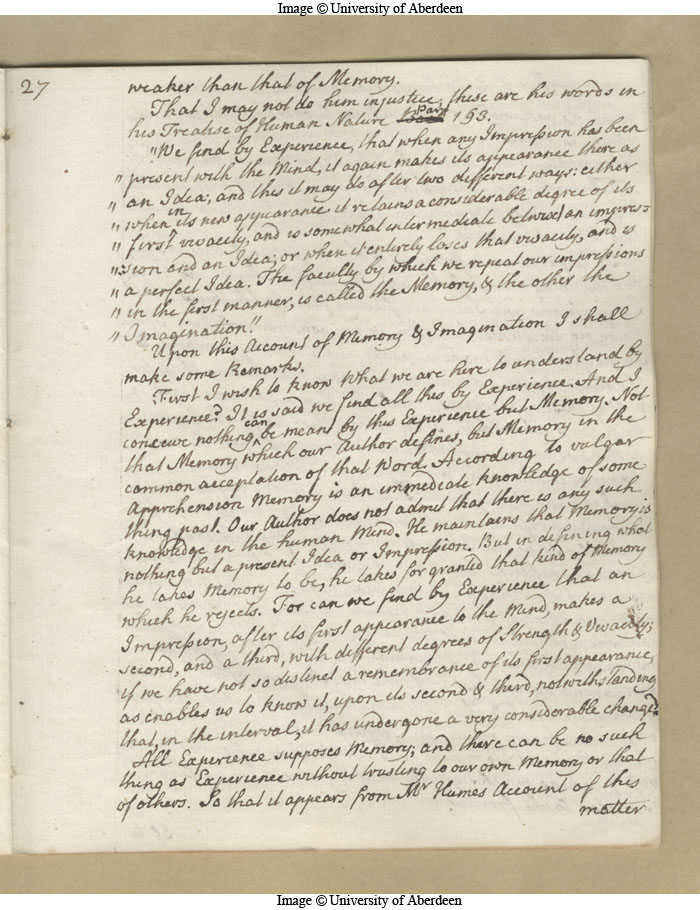 Image © University of Aberdeen
27
weaker than that of Memory.
That I may not do him injustice, these are his words in
his Treatise of Human Nature Book Part 193.
"We find by Experience, that when any Impression has been
" present with the Mind, it again makes its appearance there as
" an Idea; and this it may do after two different ways: either
" when in its new appearance it retains a considerable degree of its
" first vivacity, and is somewhat intermediate betwixt an impres=
"sion and an Idea; or when it entirely loses that vivacity, and is
" a perfect Idea. The faculty by which we repeat our impressions
" in the first manner, is called the Memory, & the other the
" Imagination."
Upon this Account of Memory & Imagination I shall
make some Remarks.
First I wish to know what we are here to understand by
Experience? It is said we find all this by Experience. And I
conceive nothing can be meant by this Experience but Memory. Not
that Memory which our Author defines, but Memory in the
common acceptation of that Word. According to vulgar
Apprehension Memory is an immediate knowledge of some
thing past. Our Author does not admit that there is any such
knowledge in the human Mind. He maintains that Memory is
nothing but a present Idea or Impression. But in defining what
he takes Memory to be, he takes for granted that kind of Memory
which he rejects. For can we find by Experience that an
Impression, after its first appearance to the Mind, makes a
second, and a third, with different degrees of Strength & Vivacity;
if we have not so distinct a remembrance of its first appearance,
as enables us to know it, upon its second & third, notwithstanding
that, in the interval, it has undergone a very considerable change?
All Experience supposes Memory; and there can be no such
thing as Experience without trusting to our own Memory or that
of others. So that it appears from Mr Humes Account of this
matter
Image © University of Aberdeen